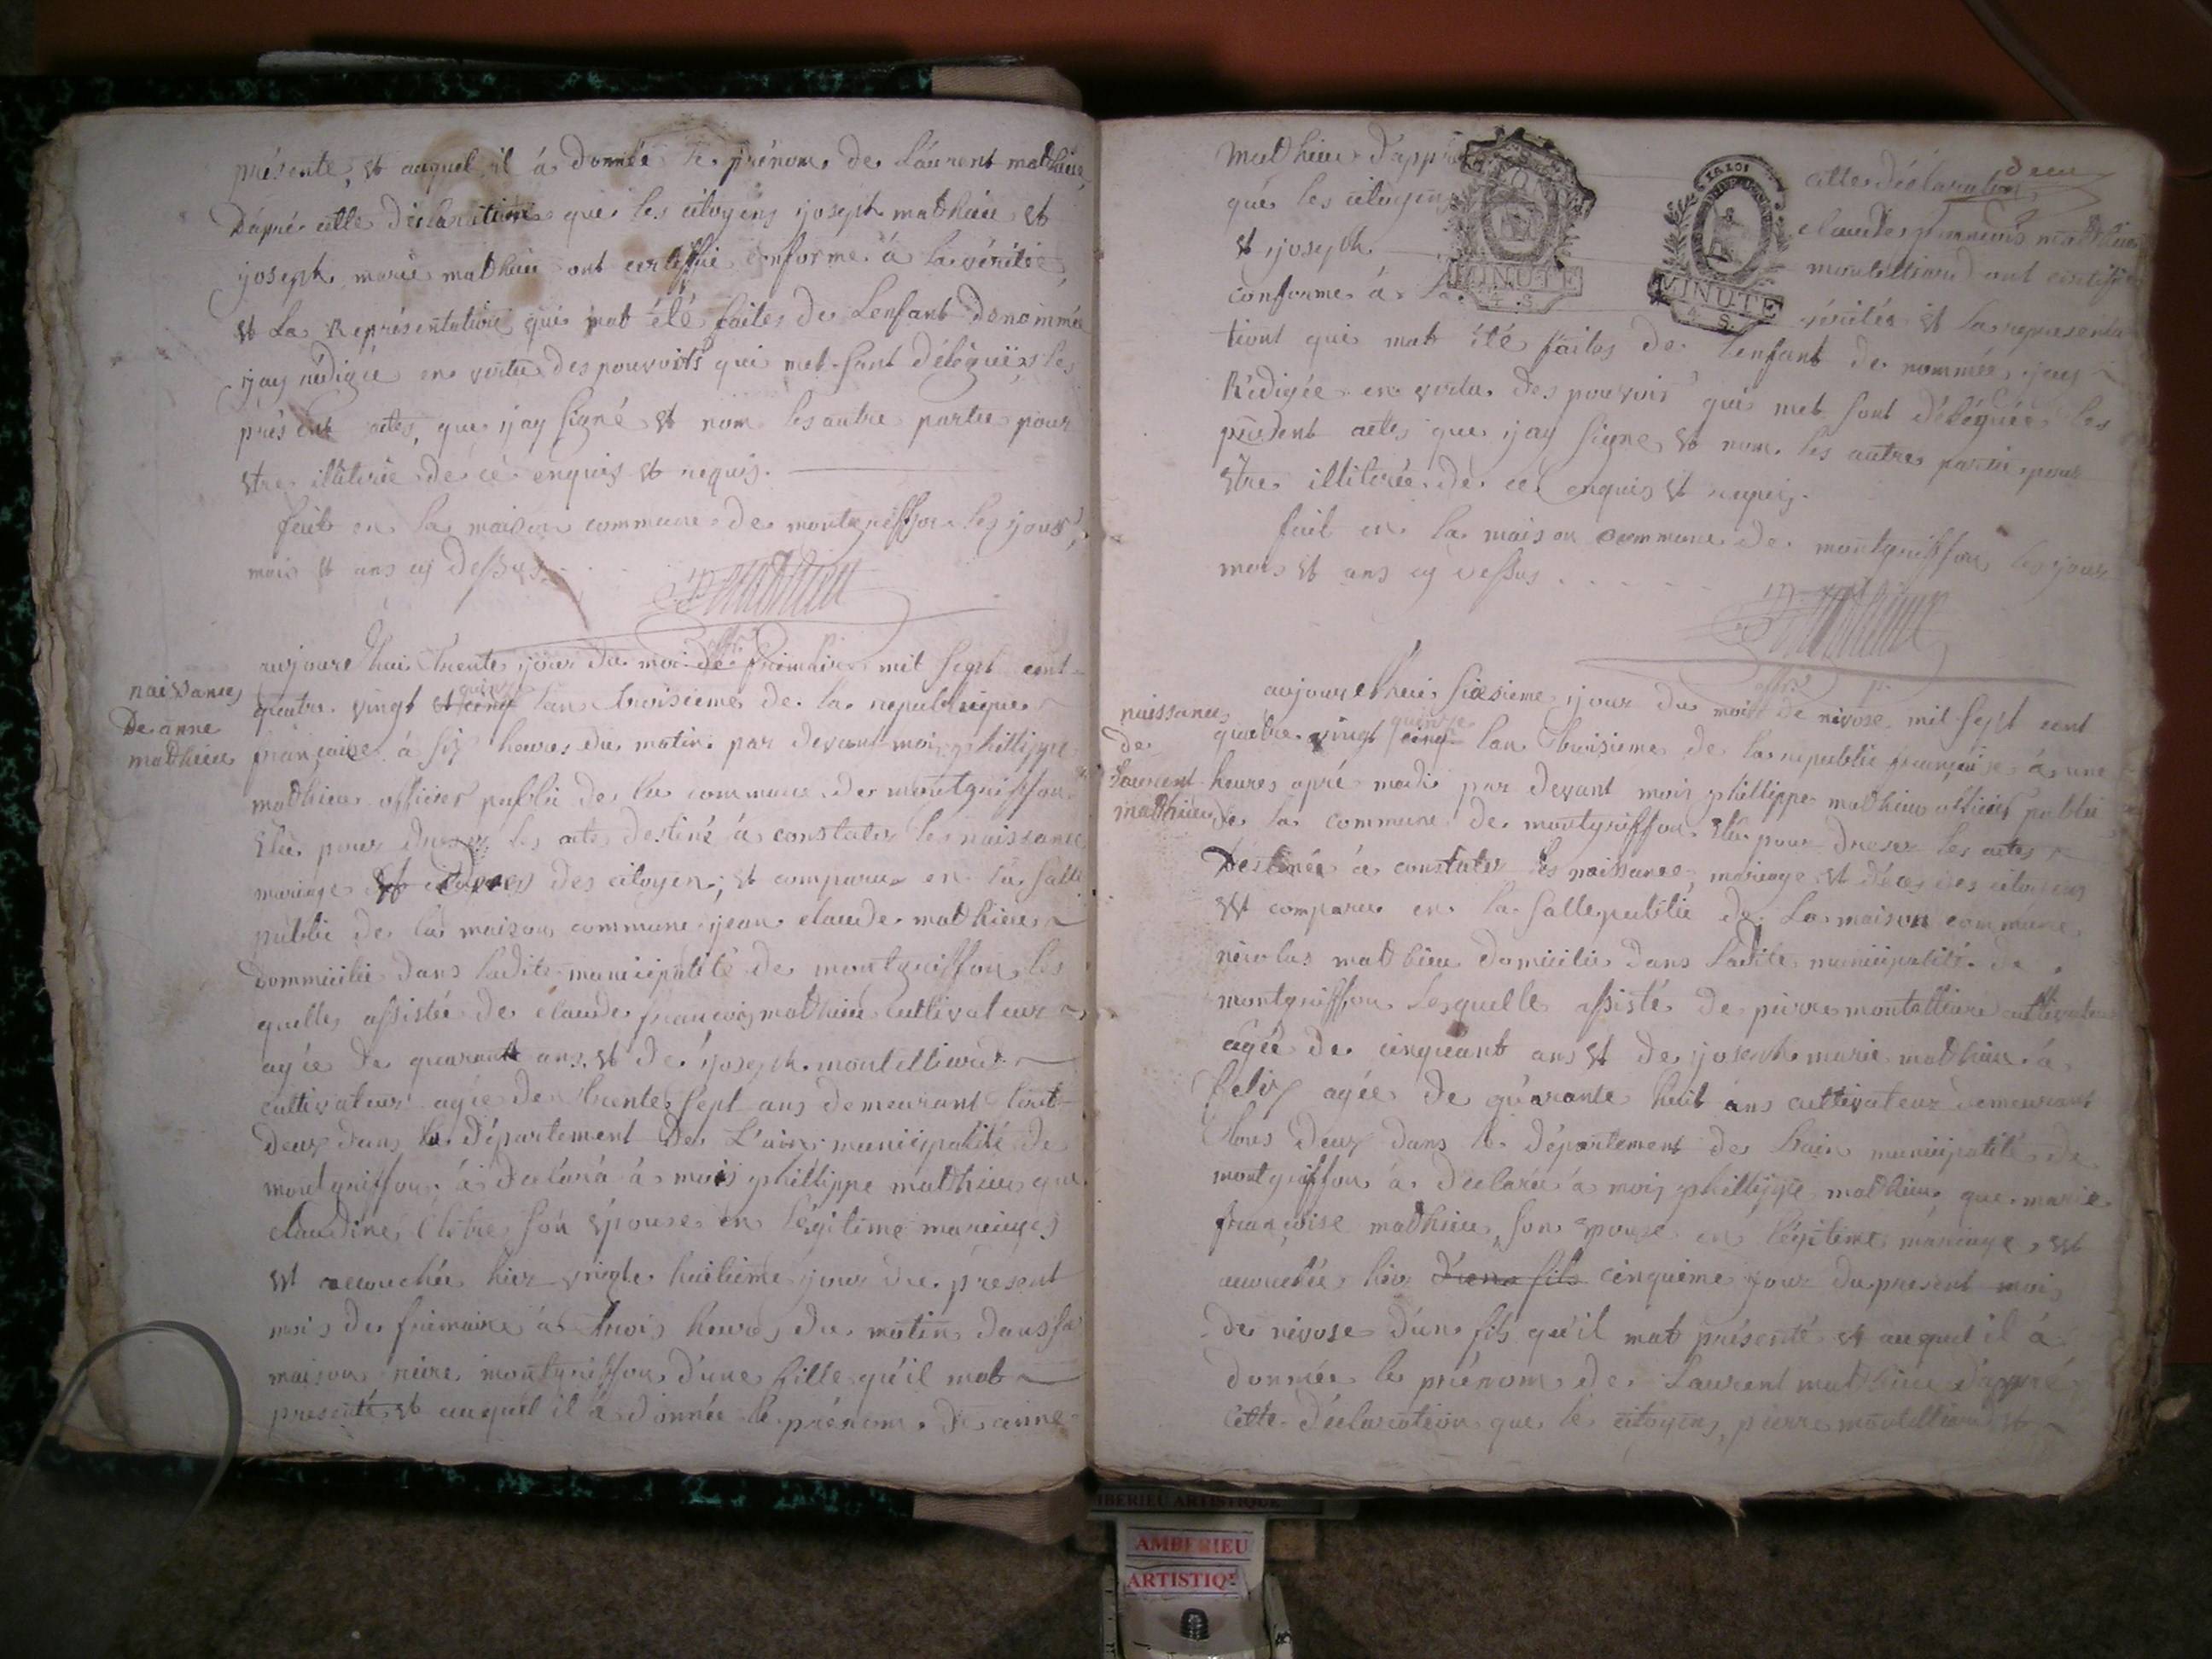 présente, et auquel il á donnée le prénom de Láurent mathieu,
D'apré cette déclaration que les citoyens joseph mathieu et
joseph marie mathieu ont certiffié conforme á la vérité,
et La Représentation qui mat été faites de Lenfant denommée
jay rédigée en vertu des pouvoirs qui met sont délégüés les
présent actes, que jay signé et nom les autre partie pour
etre illiterée de ce enquis et requis.
fait en la maison commune de montgriffon les jour,
mois et ans cy dessus
mathieu
offr.
naissances
De anne
mathieu
aujourd'hui trente jour du moi de frimaire mil sept cent
quatre vingt et cinq quinze lans troisieme de la republique
française á six heures du matin par devant moi phillippe
mathieu officier public de la commune de montgriffon
élu pour dresser les acte destiné á constater les naissance
mariage et décès des citoyen; et comparu en la salle
public de la maison commune jean claude mathieu
dommicilié dans ladite municipalité de montgriffon les
quelles assistée de claude françois mathieu cultivateur
agée de quarante ans et de joseph montellierd
cultivateur agée de trente sept ans demeurant tout
deux dans le département de L'ain municipalité de
montgriffon á declára á moi phillippe mathieu que
claudine son épouse en légitime mariages
est accouchée hier vingte huitieme jour du présent
mois de frimaire á trois heures du matin dans sa
maison montgriffon d'une fille qu'il mat
presenté et auquel il á donnée le prénom de anne
deux
mathieu d'appré cette déclaration
que les citoyens claude françois mathieu
et joseph montellierd ont certiffié
conforme á la vérités et la représenta
tiont qui mat été faites de lenfant de nommée jay
Rédigée en vertu des pouvoirs qui met sont déléguée les
présent actes que jay signe et nom les autres partie pour
être illiterée de ce enquis et requis.
fait en la maison commune de montgriffon les jour
mois et ans cy dessus
MINUTE
4. S.
LA LOI
MINUTE
4. S.
mathieu
offr. p.
naissances
de
Laurent
mathieu
aujourdhui sixsieme jour du mois de nivose mil sept cent
quatre vingt cinq quinze lan troisieme de la republic française á une
heures apré midi par devant moi phillippe mathieu officier public
de la commune de montgriffon élu pour dresser les actes
destinée á constater les naissance, mariage et décès des citoyens
est comparu en la salle public de la maison commune
nicolas mathieu domicilié dans ladite municipalité de
montgriffon lesquelle assisté de pierre montellierd cultivateur
agée de cinquant ans et de joseph marie mathieu á
felix agée de quarante huit ans cultivateur demeurant
tous deux dans le département de lain municipalité de
montgriffon á declárée á moi phillippe mathieu que marie
françoise mathieu son epouse en légitime mariage est
accouchée hier d'une fils cinquieme jour du present mois
de nivose d'un fils qu'il mat présenté et auquel il á
donnée le prénom de Laurent mathieu d'apprè
cette déclaration que le citoyens pierre montellierd et
AMBERIEU ARTISTIQUE
AMBERIEU
ARTISTIQ